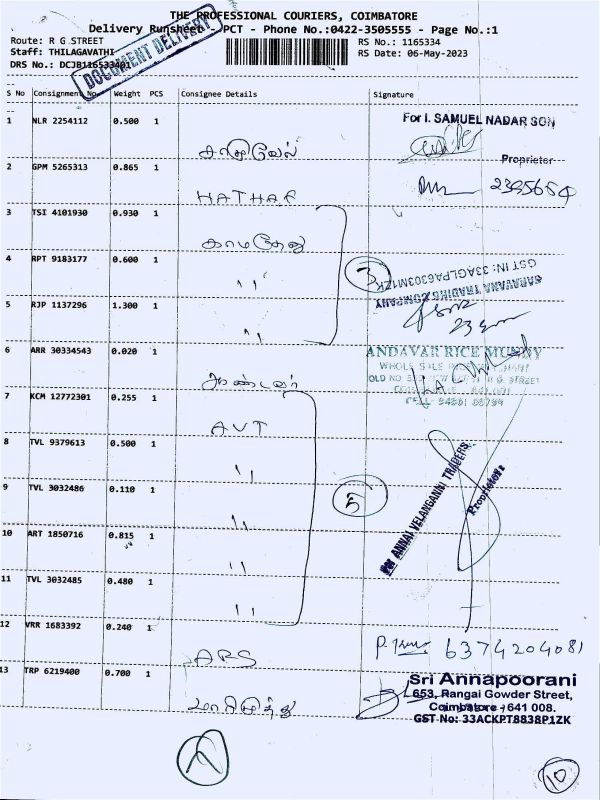 THE PROFESSIONAL COURIERS, COIMBATORE
Delivery Runsheet - PCT - Phone No.:0422-3505555 - Page No.:1
Route: R G STREET
RS No.: 1165334
Staff: THILAGAVATHI
RS Date: 06-May-2023
DRS No.: DCJB116533401
DOCUMENT DELIVERY
S No Consignment No. Weight PCS Consignee Details Signature
1 NLR 2254112 0.500 1
For I. SAMUEL NADAR SON
Proprietor
2 GPM 5265313 0.865 1
HATHAE
3 TSI 4101930 0.930 1
காமதேனு
4 RPT 9183177 0.600 1
,,
3
GST IN: 33AGLPA6303M1ZK
SARAVANA TRADING COMPANY
5 RJP 1137296 1.300 1
,,
6 ARR 30334543 0.020 1
ANDAVAR RICE MUNDY
7 KCM 12772301 0.255 1
AVT
8 TVL 9379613 0.500 1
,,
9 TVL 3032486 0.110 1
,,
5
For ANNAI VELANGANNI TRADERS
Proprietors
10 ART 1850716 0.815 1
,,
11 TVL 3032485 0.480 1
,,
12 VRR 1683392 0.240 1
ARS
6374204081
13 TRP 6219400 0.700 1
மாரிமுத்து
Sri Annapoorani
653, Rangai Gowder Street,
Coimbatore - 641 008.
GST No: 33ACKPT8838P1ZK
10